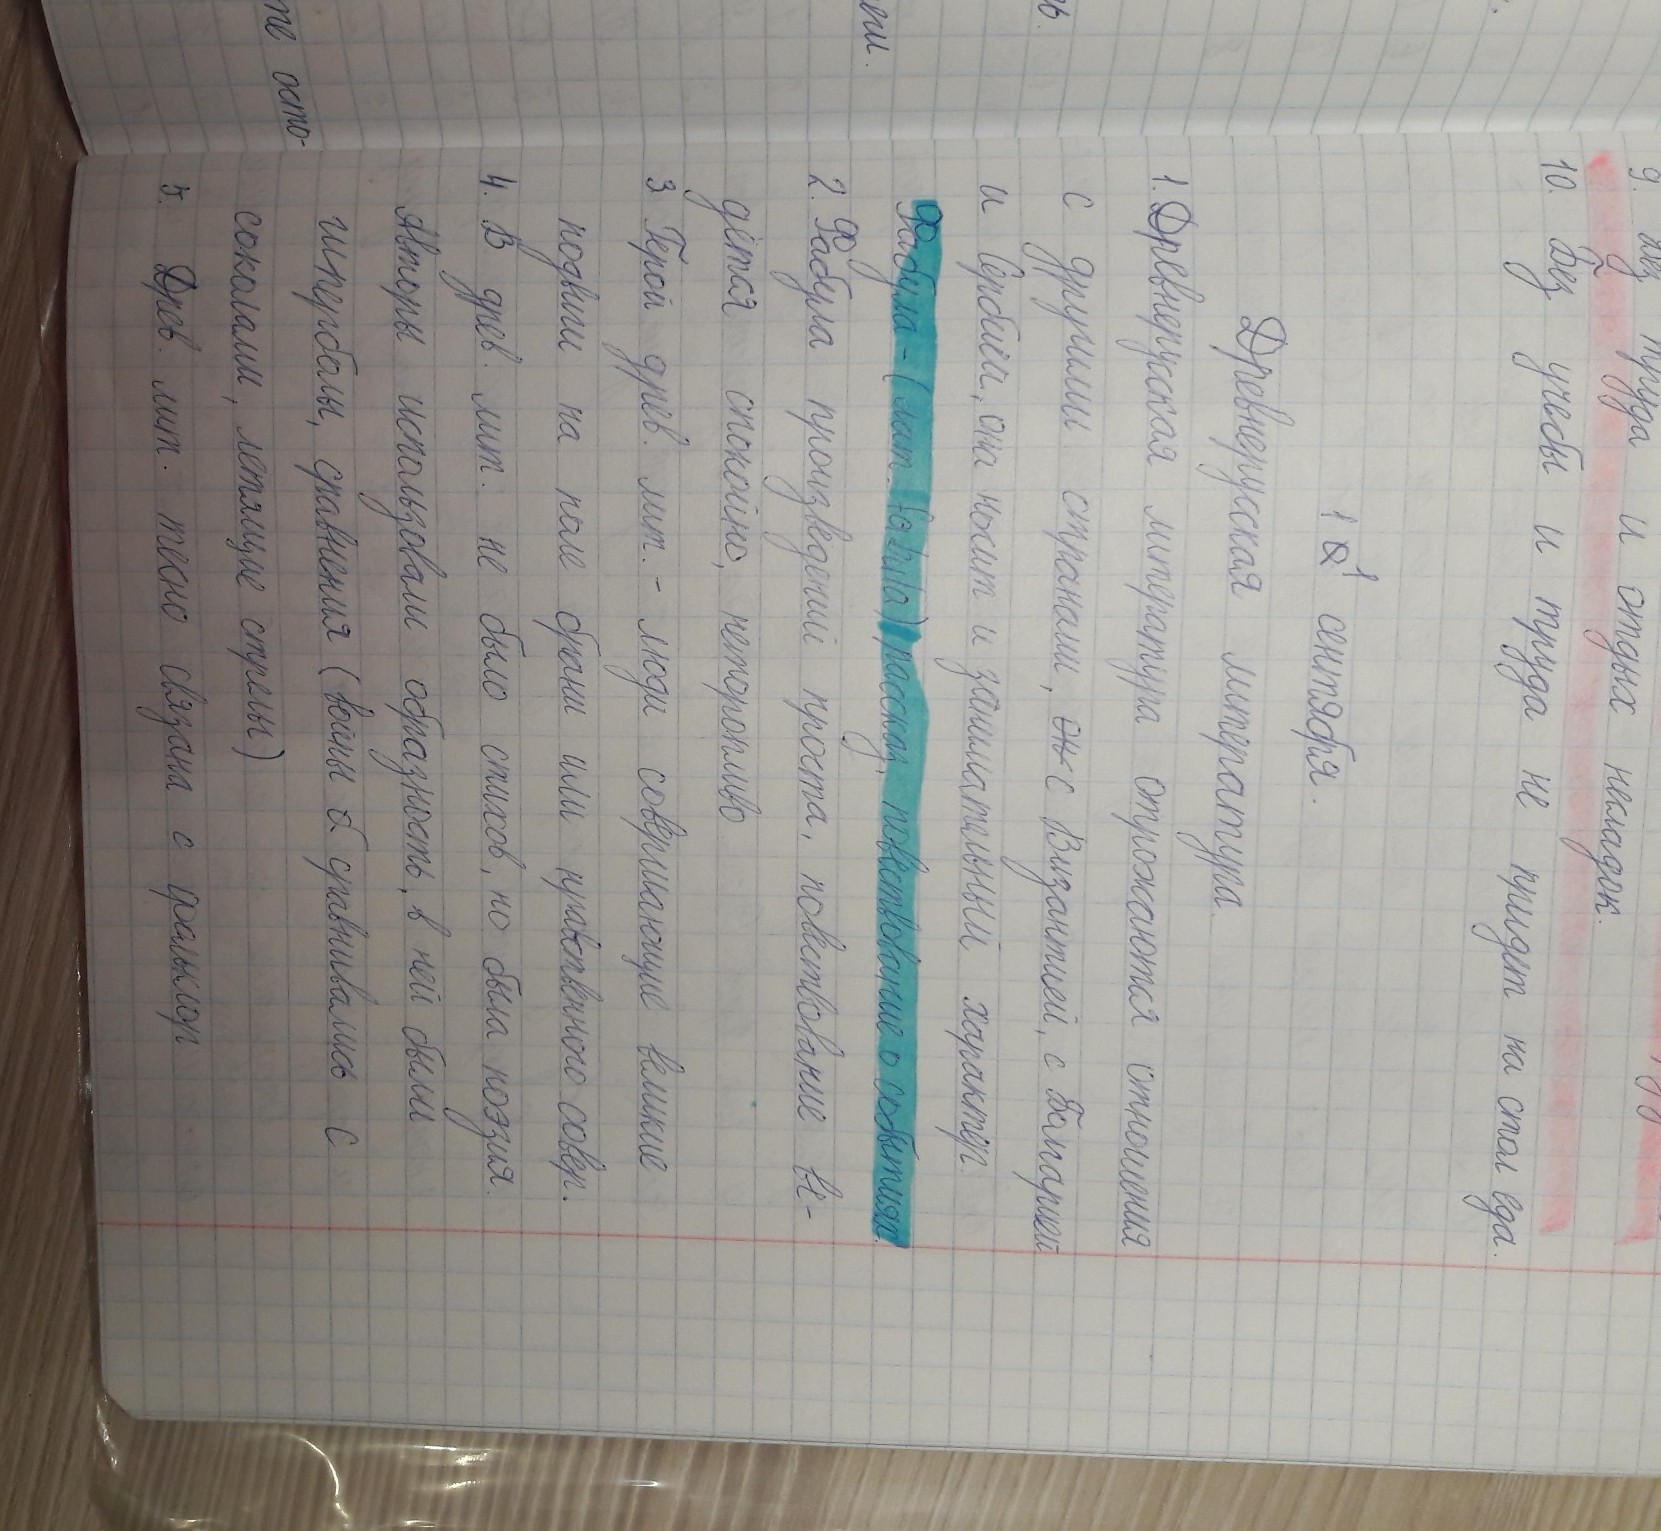 9. Без труда и отдых несладок.
10. Без учебы и труда не придят на стол еда.
11 сентября.
Древнерусская литература.
1. Древнерусская литература отрожаются отношения
с другими странами, с Византией, с Болгарией
и Сербией, она носит и занимательный характер.
Фабула - (лат. fabula) рассказ, повествование о событиях.
2. Фабула произведений проста, повествование ве-
дётся спокойно, неторопливо.
3 Герой древ. лит. - люди совершающие великие
подвиги на поле брани или нравственного совер.
4. В древ. лит. не было стихов, но была поэзия.
Авторы использовали образность, в ней были
гиперболы, сравнения (войны сравнивались с
соколами, летящие стрелы)
5. Древ. лит. тесно связана с фольклор